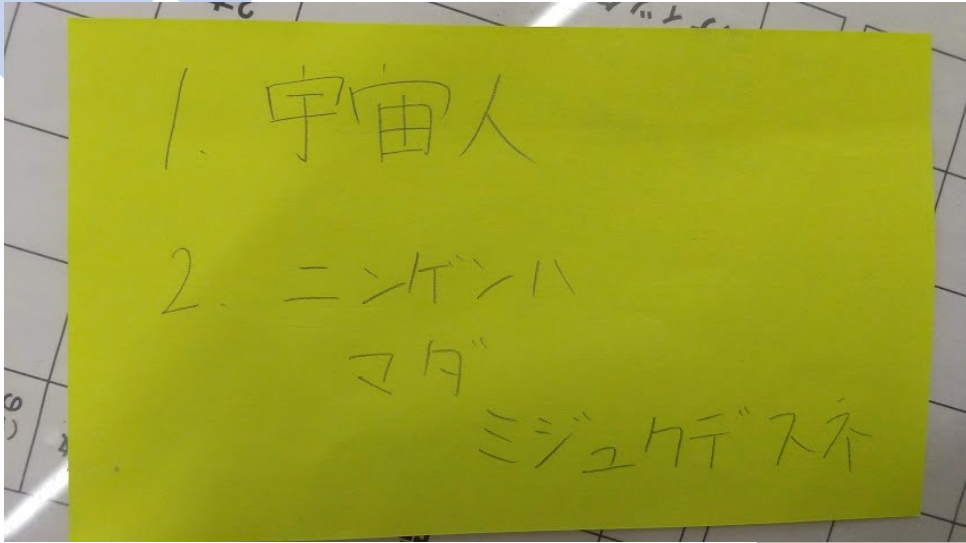 1. 宇宙人
2. ニンゲンハ
マダ
ミジュクデスネ